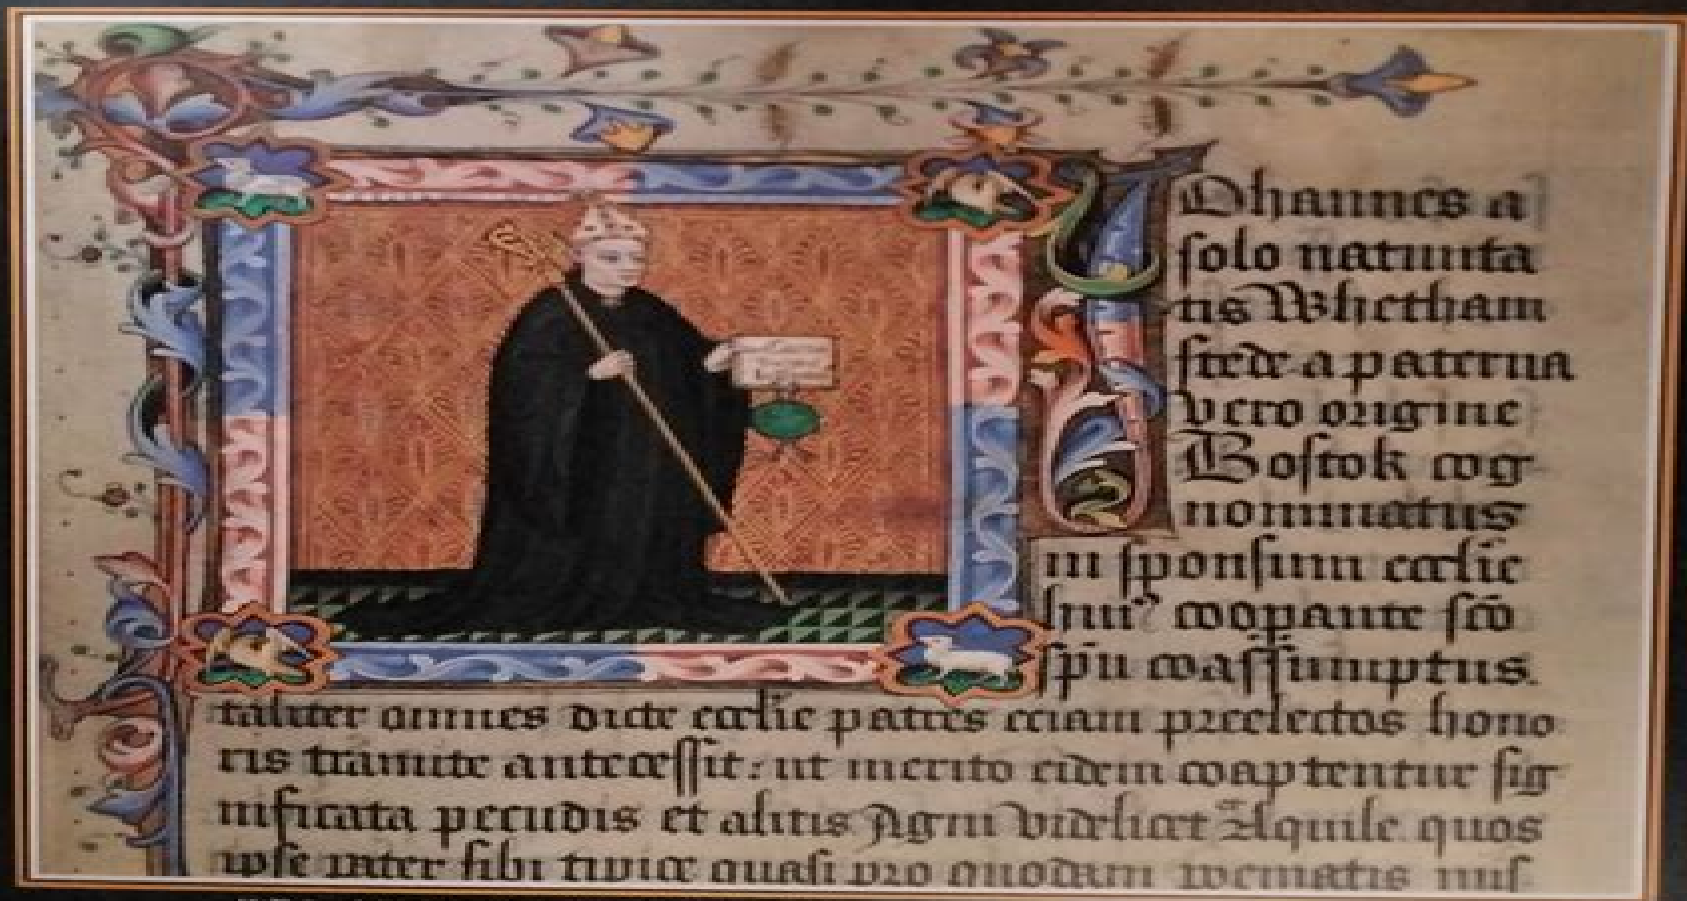 Johannes a
solo natiuita
tis Whetham
stede a paterna
vero origine
Bostok cog
nominatus
in sponsum ecclie
huius cooꝑante sc̄o
sp̄u coassumptus.
taliter omnes dicte ecclie patres eciam preelectos hono
ris tramite antecessit: ut merito eidem coaptentur sig
nificata pecudis et alitis Agni videlicet & Aquile quos
ipse pater sibi quasi pro quodam